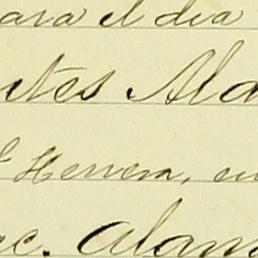 para el dia
ntes Ala
l Herrera, en
ec. Alam